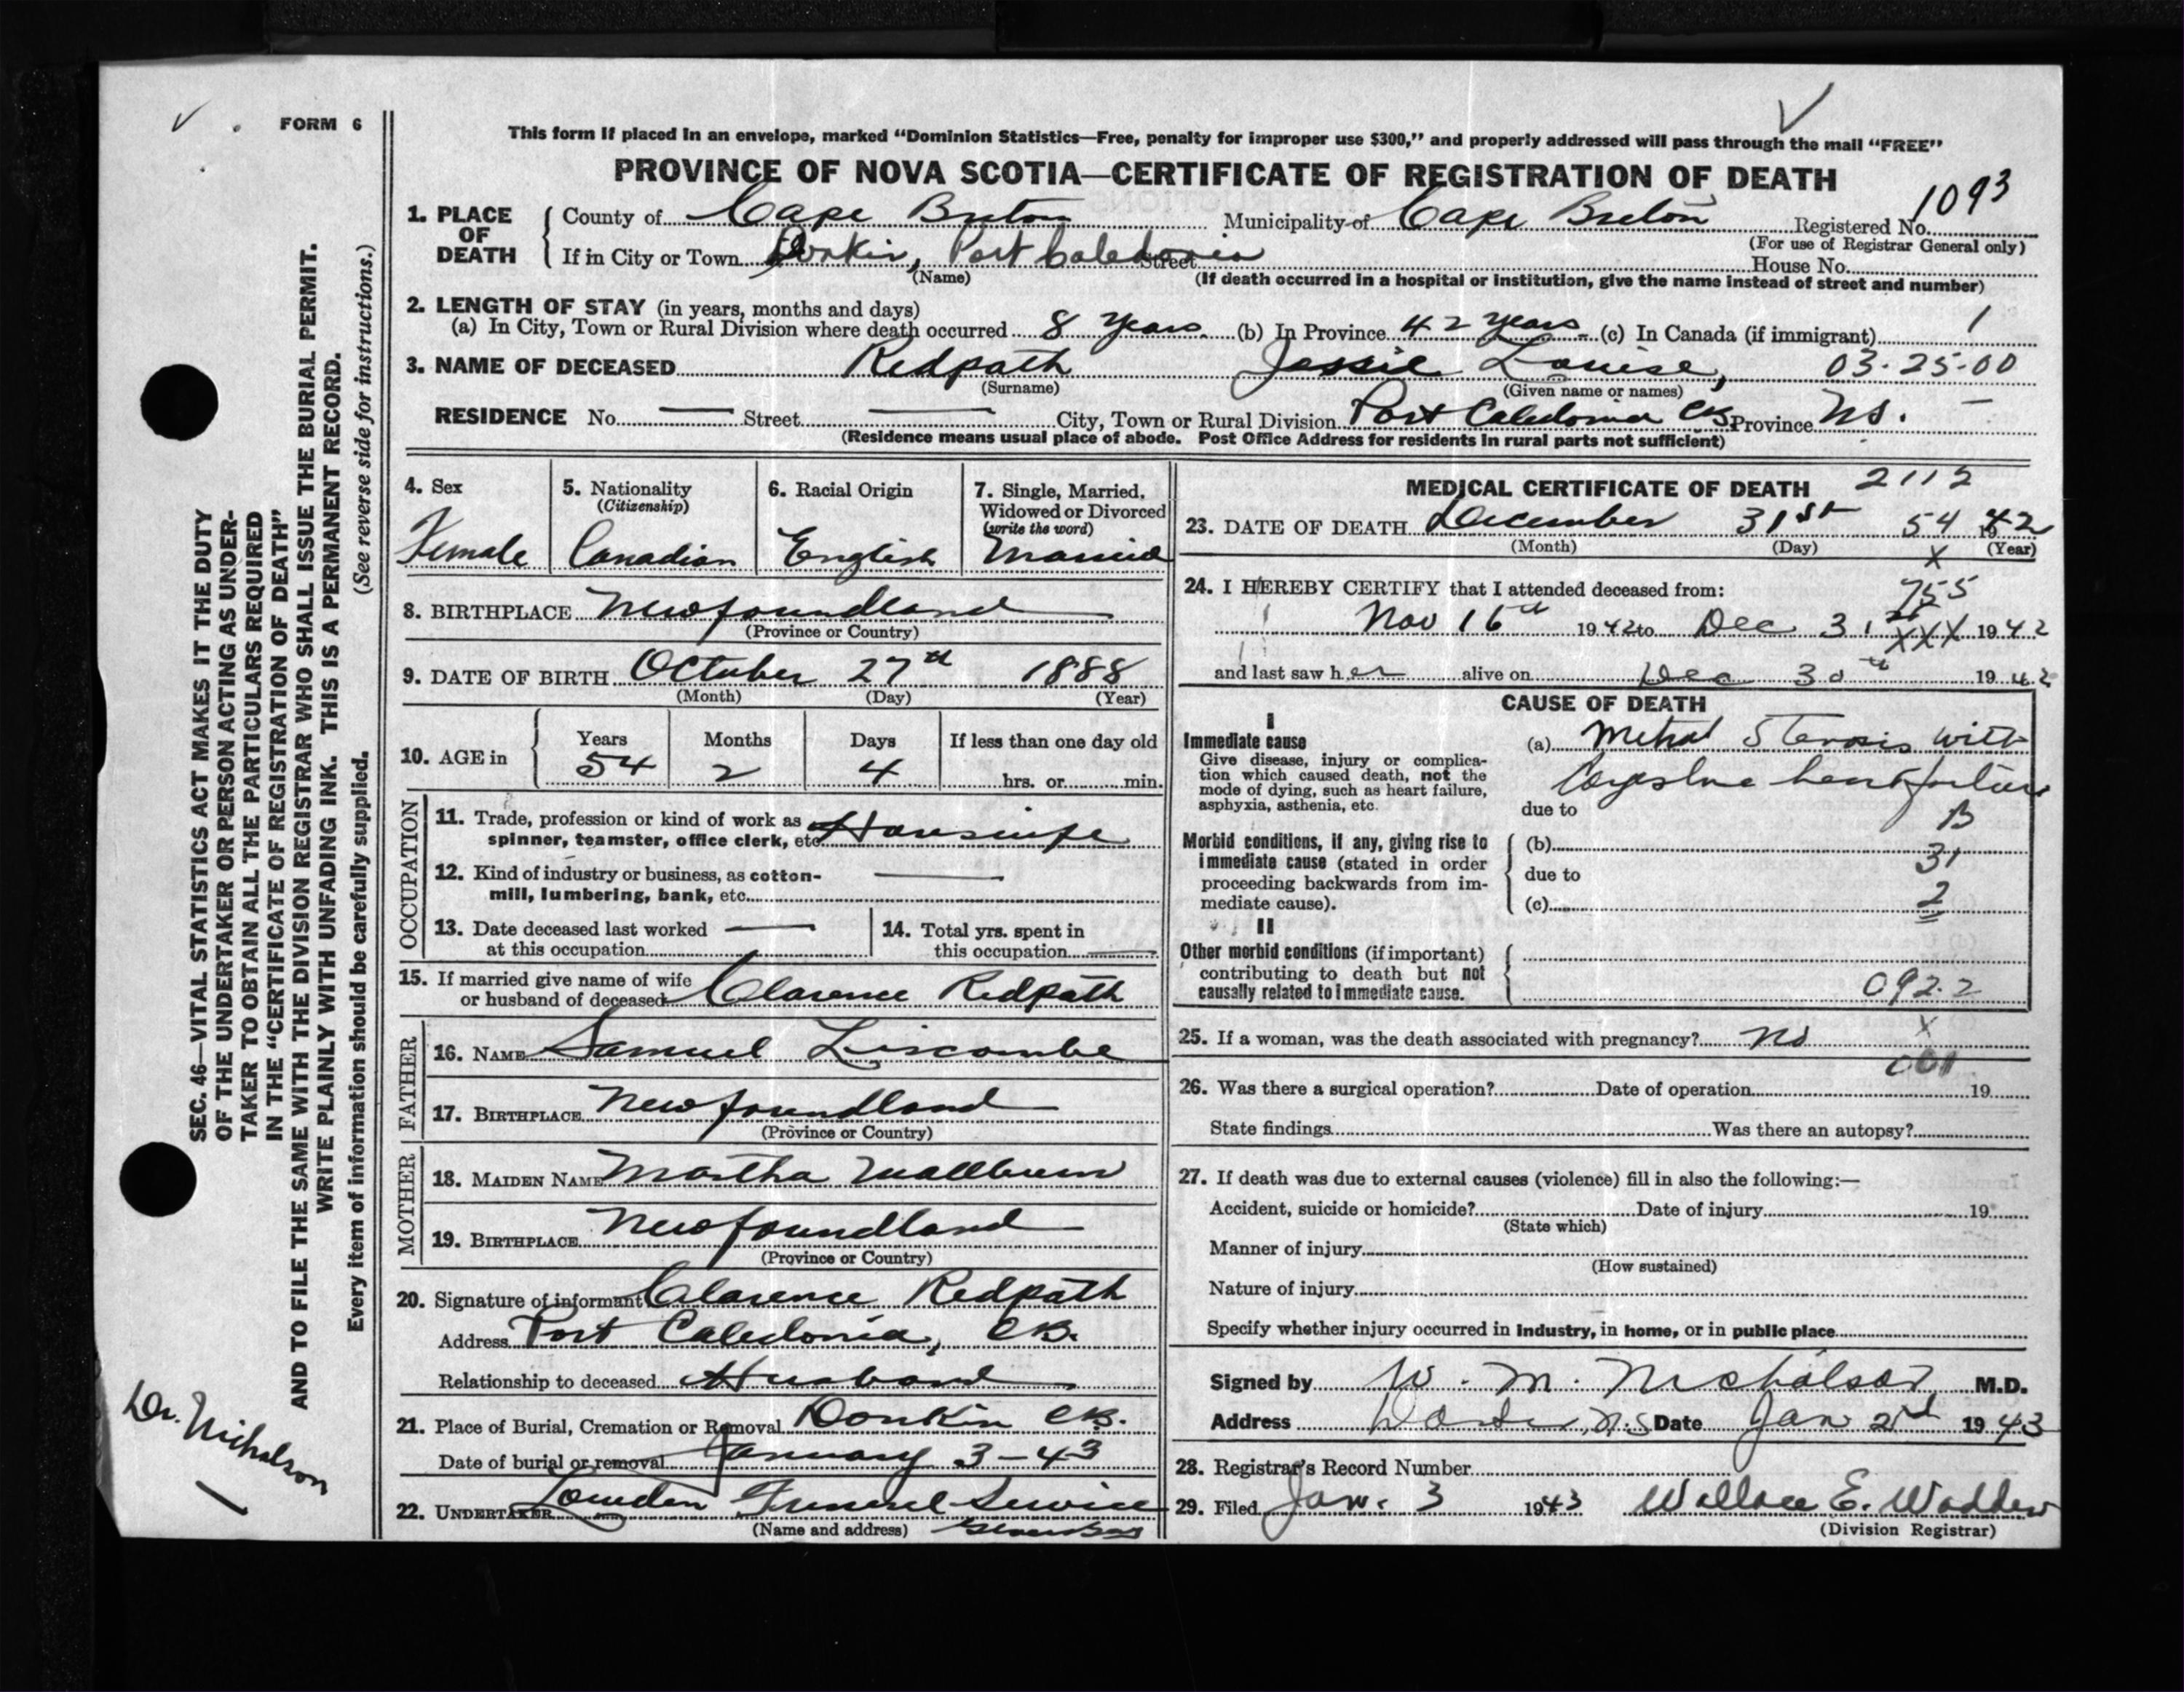 FORM 6
This form if placed in an envelope, marked “Dominion Statistics—Free, penalty for improper use $300,” and properly addressed will pass through the mail “FREE”
PROVINCE OF NOVA SCOTIA—CERTIFICATE OF REGISTRATION OF DEATH
1. PLACE OF DEATH County of Cape Breton Municipality of Cape Breton Registered No. 1093
(For use of Registrar General only)
If in City or Town Donkin, Port Caledonia Street House No.
(Name) (If death occurred in a hospital or institution, give the name instead of street and number)
2. LENGTH OF STAY (in years, months and days)
(a) In City, Town or Rural Division where death occurred 8 years (b) In Province 42 years (c) In Canada (if immigrant) 1
3. NAME OF DECEASED Redpath Jessie Louise, 03-25-00
(Surname) (Given name or names)
RESIDENCE No. — Street — City, Town or Rural Division Port Caledonia CB Province NS.
(Residence means usual place of abode. Post Office Address for residents in rural parts not sufficient)
4. Sex
Female
5. Nationality
(Citizenship)
Canadian
6. Racial Origin
English
7. Single, Married, Widowed or Divorced
(write the word)
Married
8. BIRTHPLACE Newfoundland
(Province or Country)
9. DATE OF BIRTH October 27th 1888
(Month) (Day) (Year)
10. AGE in
Years Months Days If less than one day old
54 2 4 hrs. or min.
OCCUPATION
11. Trade, profession or kind of work as spinner, teamster, office clerk, etc. Housewife
12. Kind of industry or business, as cotton-mill, lumbering, bank, etc. —
13. Date deceased last worked at this occupation —
14. Total yrs. spent in this occupation —
15. If married give name of wife or husband of deceased Clarence Redpath
FATHER
16. NAME Samuel Liscombe
17. BIRTHPLACE Newfoundland
(Province or Country)
MOTHER
18. MAIDEN NAME Martha
19. BIRTHPLACE Newfoundland
(Province or Country)
20. Signature of informant Clarence Redpath
Address Port Caledonia, CB.
Relationship to deceased Husband
21. Place of Burial, Cremation or Removal Donkin CB.
Date of burial or removal January 3-43
22. UNDERTAKER Funeral Service
(Name and address)
MEDICAL CERTIFICATE OF DEATH 2112
23. DATE OF DEATH December 31st 54 1942
(Month) (Day) (Year)
X
24. I HEREBY CERTIFY that I attended deceased from: 755
Nov 16th 1942 to Dec 31st XXX 1942
and last saw her alive on Dec 30th 1942
CAUSE OF DEATH
I
Immediate cause
Give disease, injury or complication which caused death, not the mode of dying, such as heart failure, asphyxia, asthenia, etc.
(a) Mitral Stenosis with
Congestive heart failure
due to B
Morbid conditions, if any, giving rise to immediate cause (stated in order proceeding backwards from immediate cause).
(b) 31
due to
(c) 2
II
Other morbid conditions (if important) contributing to death but not causally related to immediate cause.
092.2
25. If a woman, was the death associated with pregnancy? No X
001
26. Was there a surgical operation? Date of operation 19
State findings Was there an autopsy?
27. If death was due to external causes (violence) fill in also the following:—
Accident, suicide or homicide? Date of injury 19
(State which)
Manner of injury
(How sustained)
Nature of injury
Specify whether injury occurred in industry, in home, or in public place
Signed by W. M. Nicholson M.D.
Address N.S Date Jan 2nd 1943
28. Registrar's Record Number
29. Filed Jan. 3 1943 Wallace E. Wadden
(Division Registrar)
SEC. 46—VITAL STATISTICS ACT MAKES IT THE DUTY
OF THE UNDERTAKER OR PERSON ACTING AS UNDER-
TAKER TO OBTAIN ALL THE PARTICULARS REQUIRED
IN THE “CERTIFICATE OF REGISTRATION OF DEATH”
AND TO FILE THE SAME WITH THE DIVISION REGISTRAR WHO SHALL ISSUE THE BURIAL PERMIT.
WRITE PLAINLY WITH UNFADING INK. THIS IS A PERMANENT RECORD.
Every item of information should be carefully supplied. (See reverse side for instructions.)
Dr. Nicholson